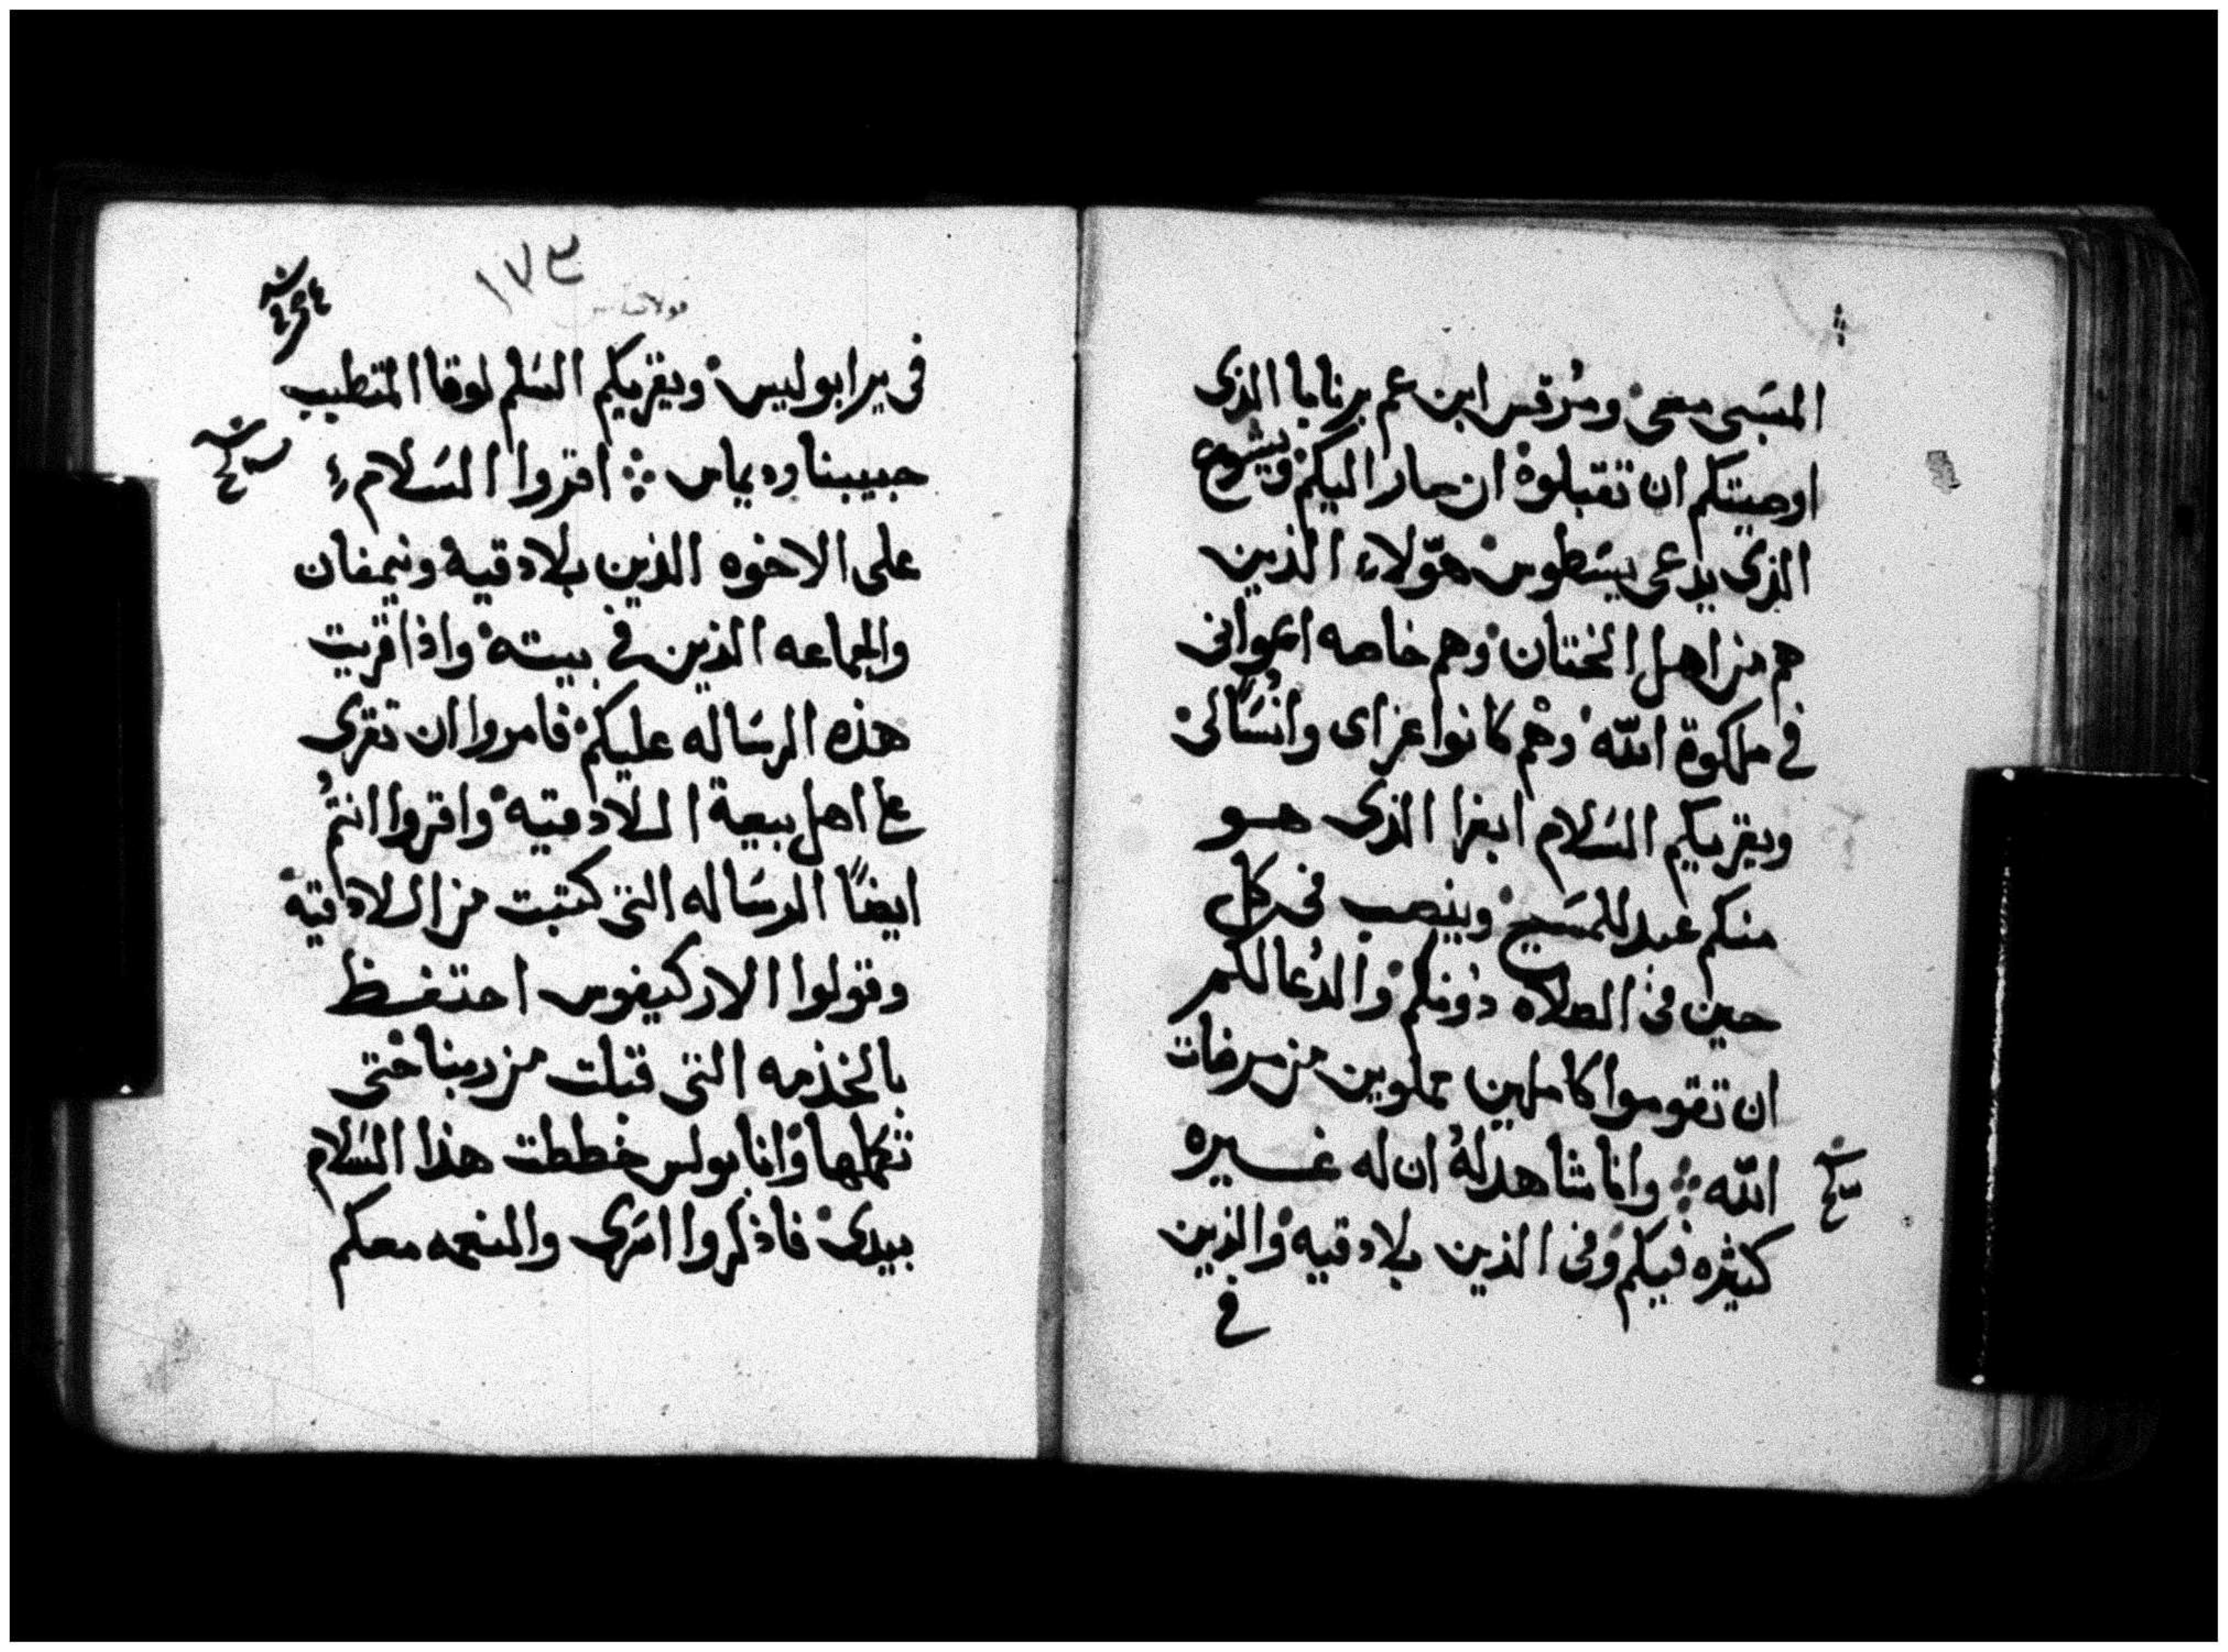 المسَبى معى ومرقس ابن عم برنابا الذى
اوصيتكم ان تقبلوه ان صار اليكم ويشوع
الذى يدعى يسَطوس هوّلاء الذين
هم من اهل الختان وهم خاصه اعوانى
فى ملكوة اللّه وهم كانوا عزاى وانسًالى
ويقريكم السَلام ابفرا الذى هو
منكم عبد للمسَيح وينصب فى كل
حين فى الصلاه دونكم والدُعا لكم
ان تقوموا كاملين مملوين من مرضات
اللّه وانا شاهد لهُ ان له غيره
كثيره فيكم وفى الذين بلادقيه والذين
فى
١٧٣
فى يرابوليس ويقريكم السَلم لوقا المتطبب
حبيبنا وديماس اقروا السَلام
على الاخوه الذين بلادقيه ونيمفان
والجماعه الذين فى بيته واذا قريت
هذه الرسَاله عليكم فامروا ان تقرى
على اهل بيعة اللادقيه واقروا انتُم
ايضًا الرسَاله التى كتبت من اللادقيه
وقولوا الارkيفوس احتفظ
بالخدمه التى قبلت من ربنا حتى
تكملها وانا بولس خططت هذا السَلام
بيدى فاذكروا اسَرى والنعمه معكم